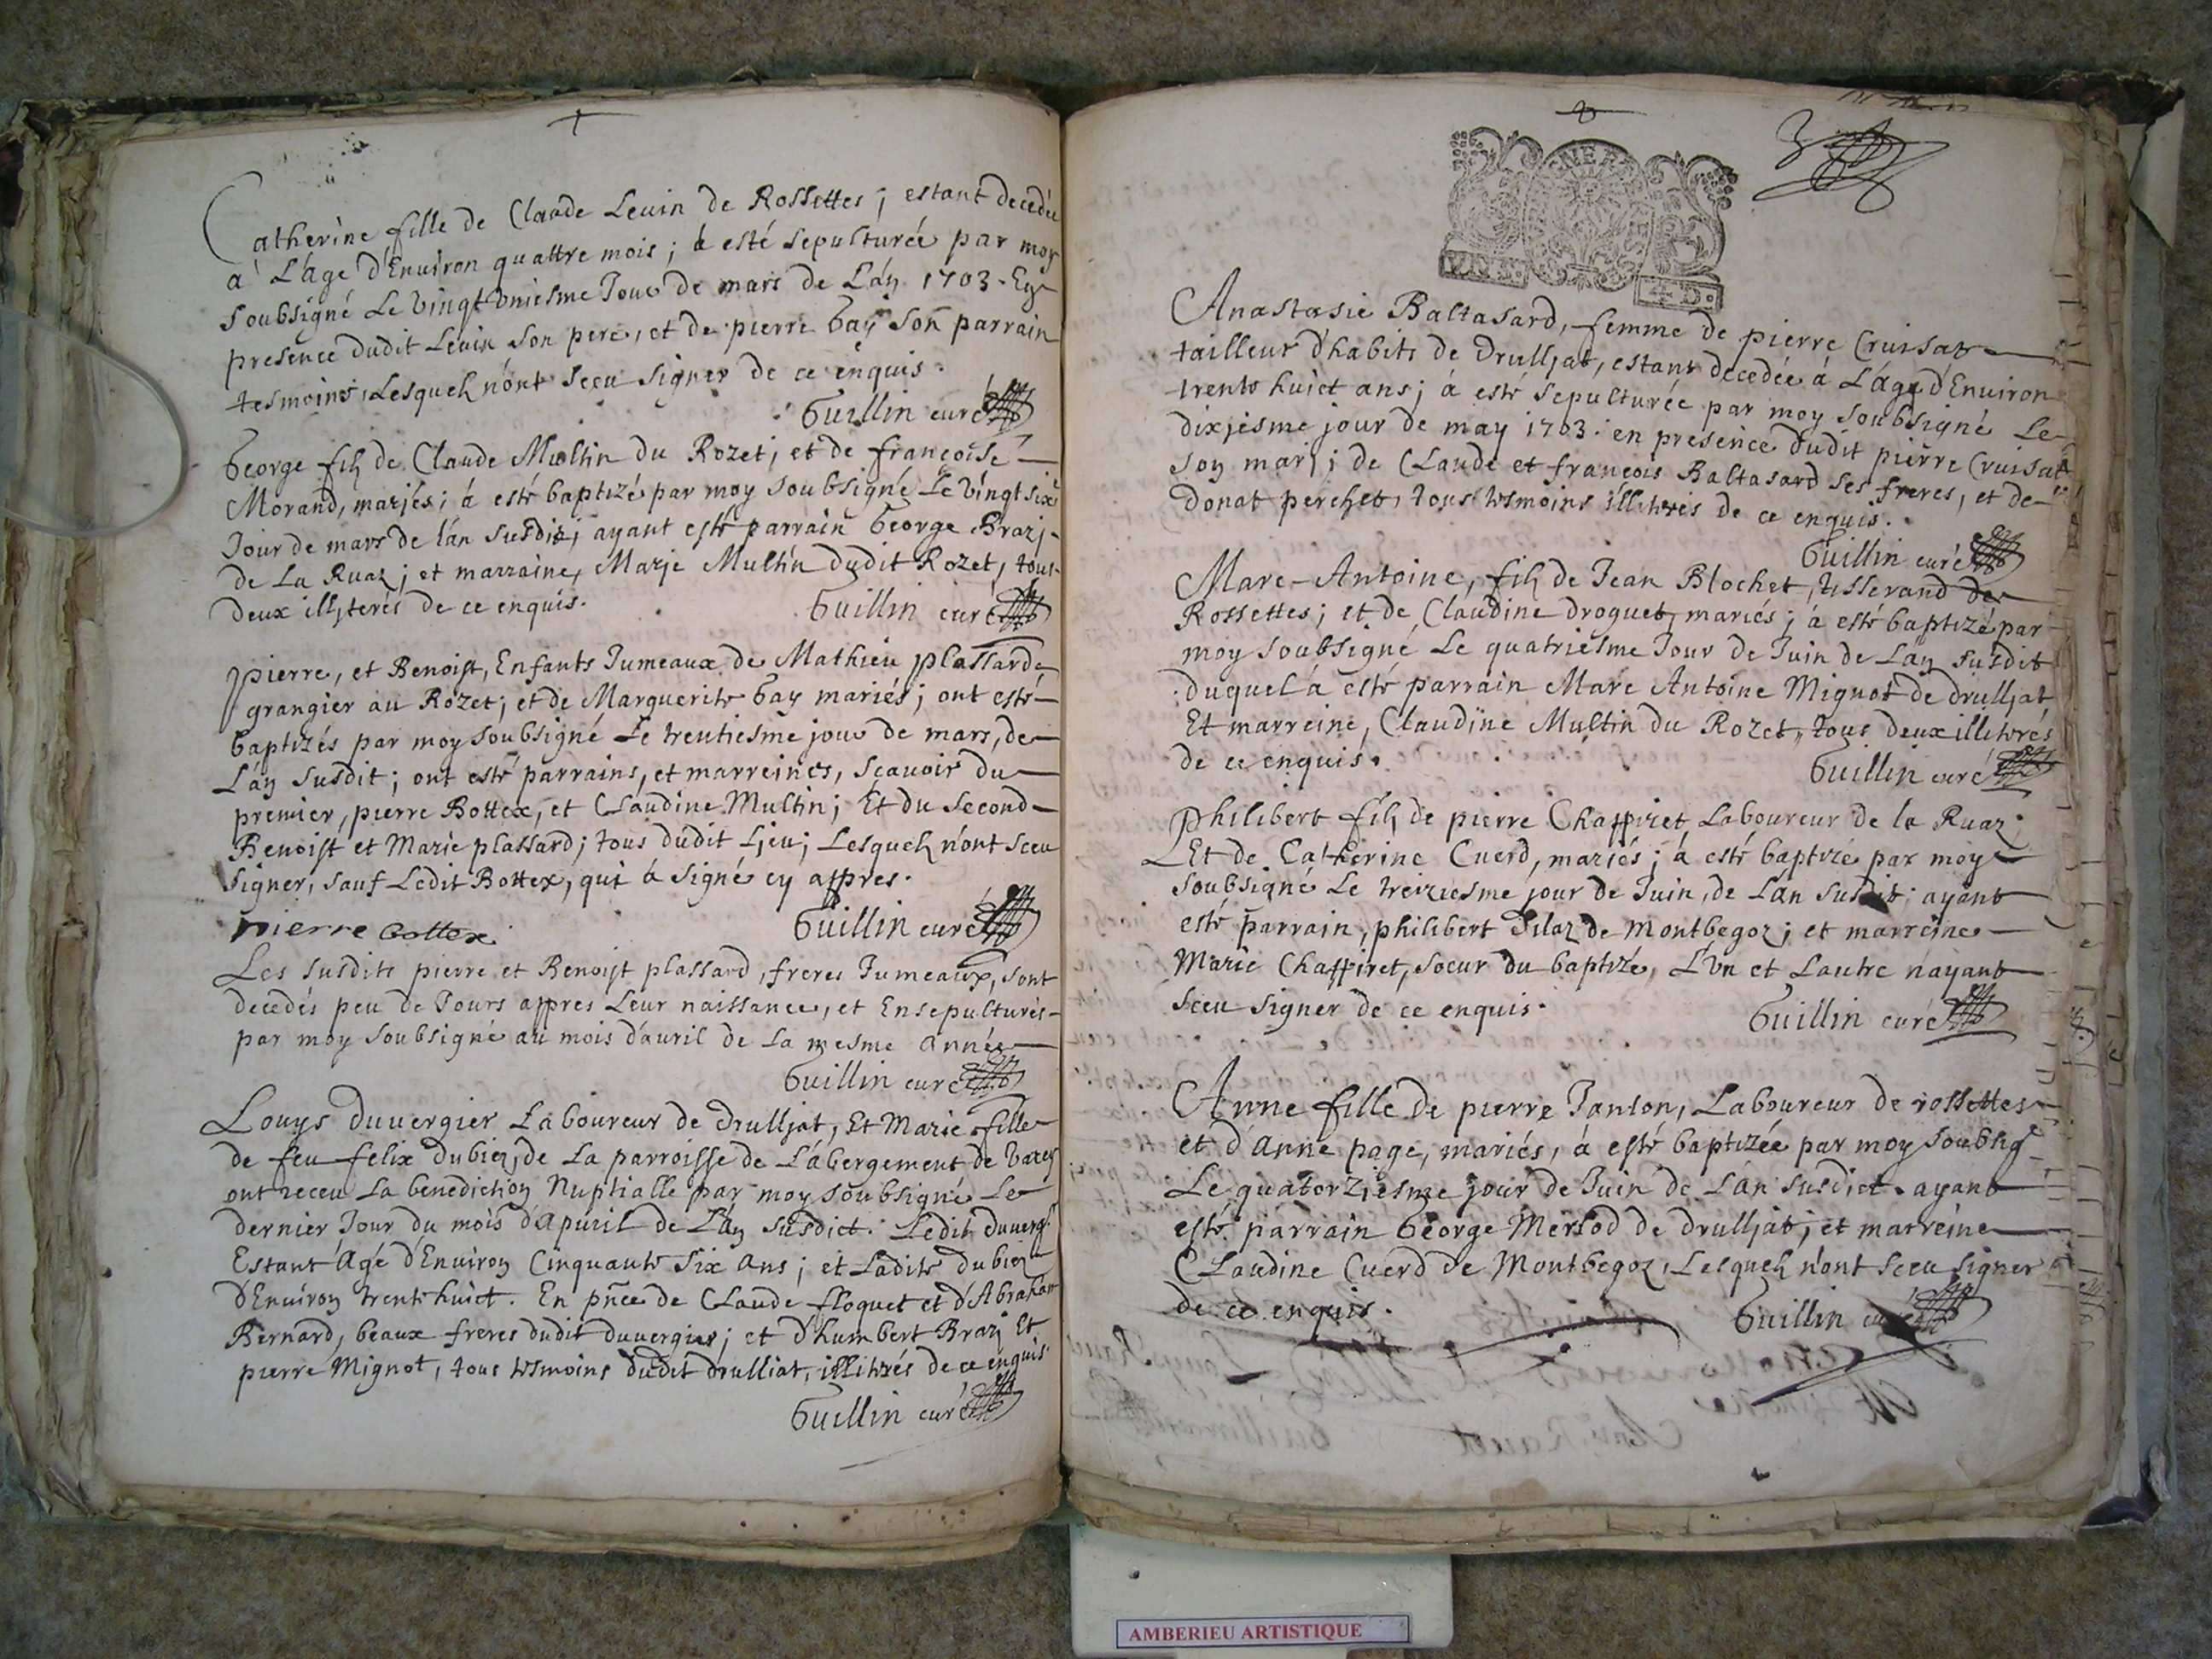 Catherine fille de Claude Levin de Rossettes ; estant decedée
à L'age d'Environ quattre mois ; à esté sepulturée par moy
soubsigné Le vingt vniesme Jour de mars de L'an 1703. En
presence dudit Levin son pere, et de pierre Gay son parrain
tesmoins, Lesquels n'ont sceu signer de ce enquis.
Guillin curé
George fils de Claude Multin du Rozet ; et de françoise
Morand, mariés ; à esté baptizé par moy soubsigné Le vingt six
Jour de mars de l'an susdit ; ayant esté parrain George Brazj
de La Ruaz ; et marraine, Marie Multin dudit Rozet, tous
deux illiterés de ce enquis.
Guillin curé
pierre, et Benoist, Enfants Jumeaux de Mathieu plassard
grangier au Rozet ; et de Marguerite Gay mariés ; ont esté
baptizés par moy soubsigné Le trentiesme jour de mars, de
L'an susdit ; ont esté parrains, et marreines, scauoir du
premier, pierre Bottex, et Claudine Multin ; Et du second
Benoist et Marie plassard ; tous dudit Lieu ; Lesquels n'ont sceu
signer, sauf Ledit Bottex, qui à signé cy appres.
pierre bottex
Guillin curé
Les susdits pierre et Benoist plassard, freres Jumeaux, sont
decedés peu de Jours appres Leur naissance, et Ensepulturés
par moy soubsigné au mois d'auril de La mesme année
Guillin curé
Louys duuergier Laboureur de drulljat, Et Marie fille
de feu felix dubiez, de La parroisse de L'abergement de Varey
ont receu La benediction Nuptialle par moy soubsigné Le
dernier Jour du mois d'Apuril de L'an susdict. Ledit duuergr
Estant Agé d'Enuiron Cinquante six ans ; et Ladite dubiez
d'Enuiron trente huict. En pnce de Claude floquet et d'Abraham
Bernard, beaux freres dudit duuergier ; et d'humbert Brazj Et
pierre Mignot, tous tesmoins dudit drulliat, illiterés de ce enquis
Guillin curé
GENER
4 D.
Anastasie Baltasard, femme de pierre Cruisat
tailleur d'habits de drulljat, estant decedée à L'age d'Enuiron
trente huict ans ; à esté sepulturée par moy soubsigné Le
dixiesme jour de may 1703. en presence dudit pierre Cruisat
son mari ; de Claude et françois Baltasard ses freres, et de
donat perchet, tous tesmoins illiterés de ce enquis.
Guillin curé
Marc-Antoine, fils de Jean Blochet, tisserand de
Rossettes ; et de Claudine droguet, mariés ; à esté baptizé par
moy soubsigné Le quatriesme Jour de Juin de L'an susdit
duquel à esté parrain Marc Antoine Mignot de drulljat
Et marreine, Claudine Multin du Rozet, tous deux illiterés
de ce enquis.
Guillin curé
Philibert fils de pierre Chappiret Laboureur de la Ruaz ;
Et de Catherine Cuerd, mariés ; à esté baptizé par moy
soubsigné Le treiziesme jour de Juin, de L'an susdit ; ayant
esté parrain, philibert Pilaz de Montbegoz ; et marreine
Marie Chappiret, soeur du baptizé, L'vn et Lautre nayant
sceu signer de ce enquis.
Guillin curé
Anne fille de pierre Janton, Laboureur de rossettes
et d'Anne page, mariés, à esté baptizée par moy soubsigé
Le quatorziesme jour de Juin de L'an susdict. ayant
esté parrain George Merlod de drulljat ; et marreine
Claudine Cuerd de Montbegoz, Lesquels n'ont sceu signer
de ce enquis.
Guillin curé
AMBERIEU ARTISTIQUE